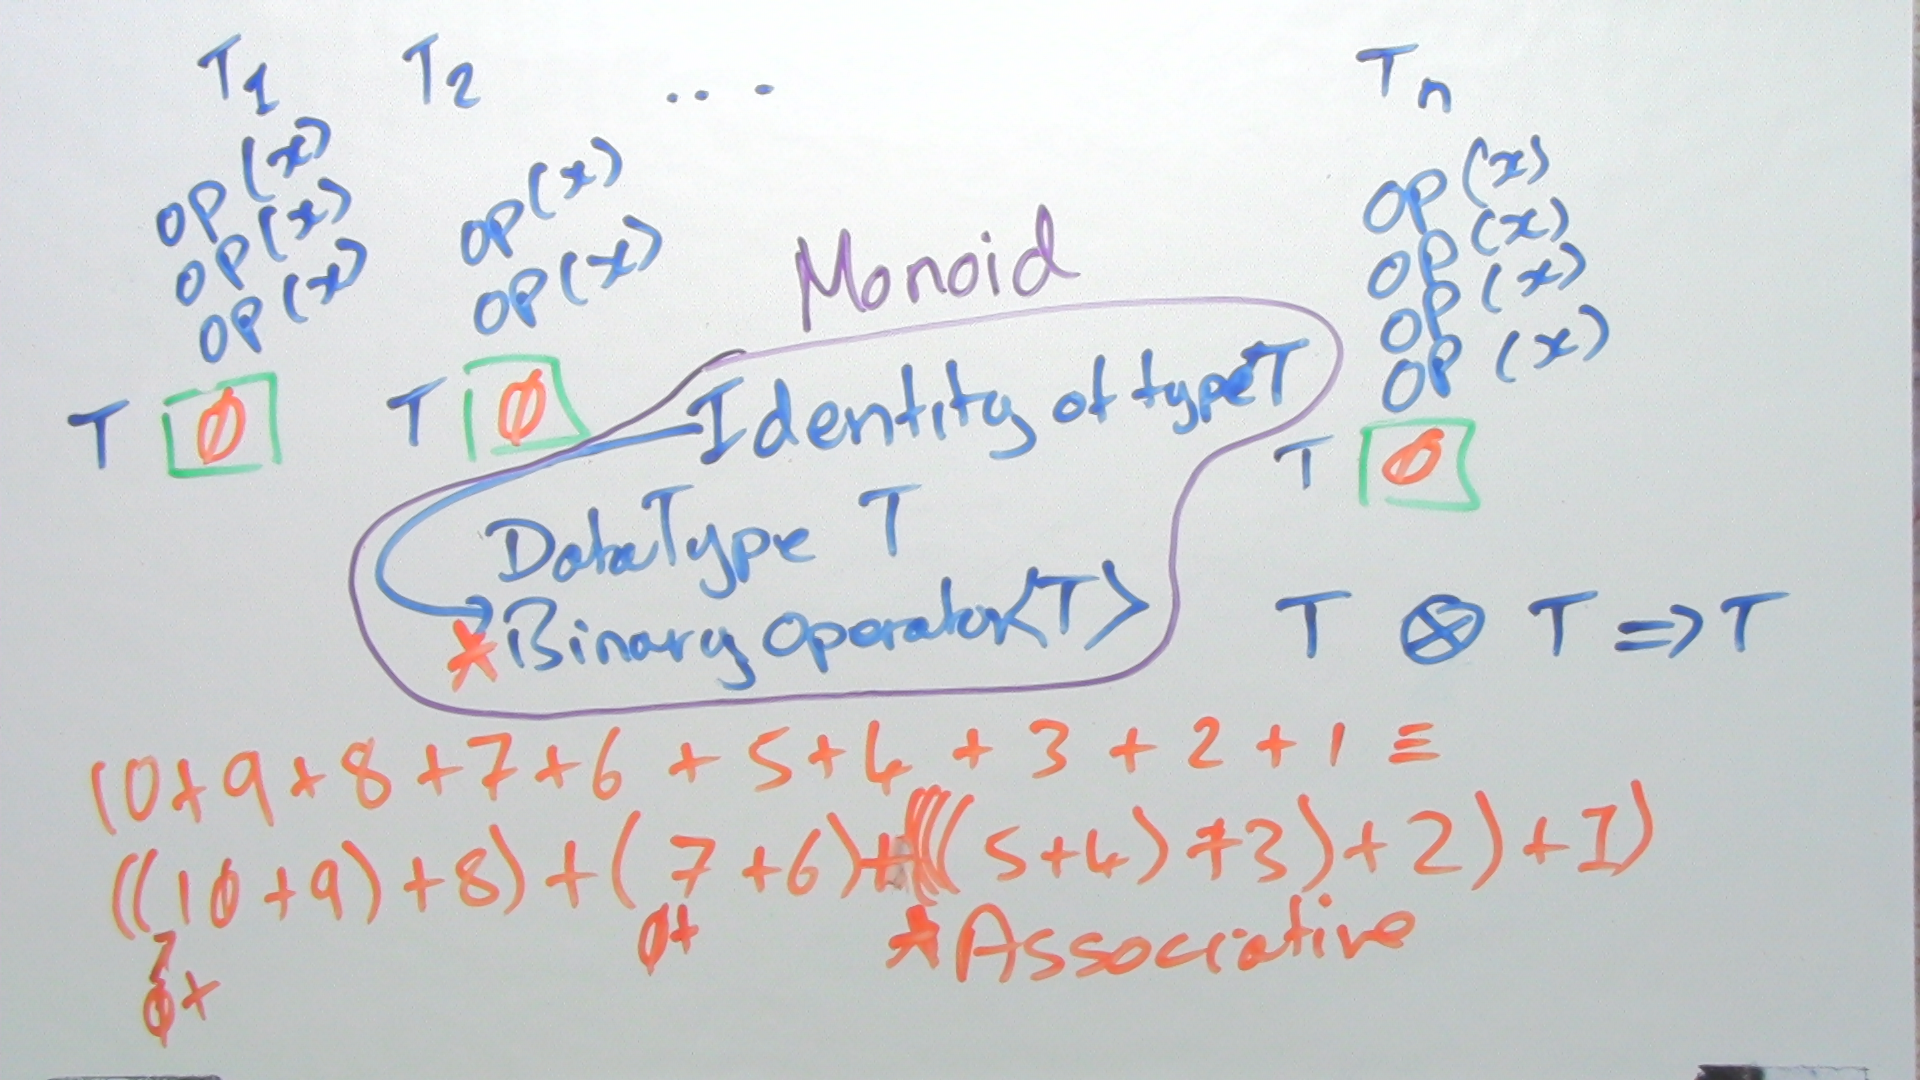 T1 T2 ... Tn
op(x) op(x) op(x)
op(x) op(x) op(x)
op(x) op(x)
op(x)
Monoid
T Ø T Ø Identity of type T T Ø
DataType T
*BinaryOperator<T> T ⊗ T => T
10+9+8+7+6+5+4+3+2+1≡
((10+9)+8)+(7+6)+((((5+4)+3)+2)+1)
Ø+ *Associative
Ø+